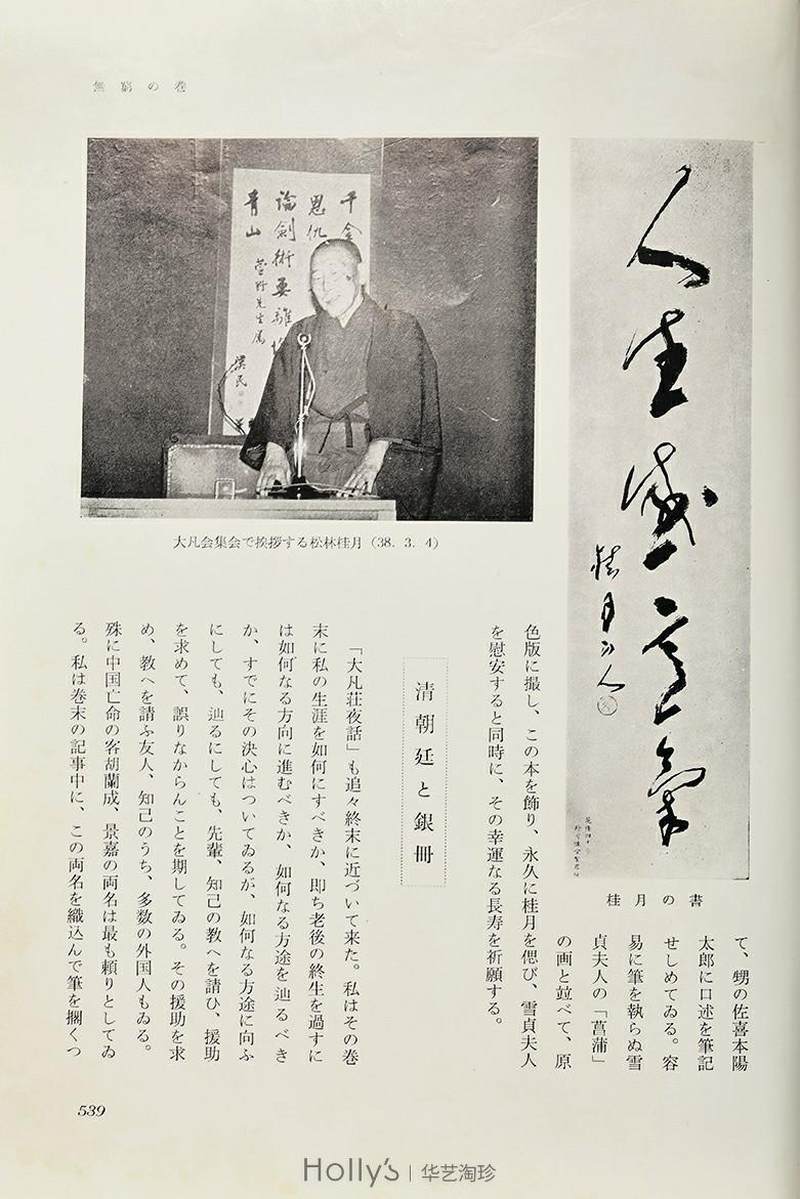 無窮の巻
千金
恩仇
論劍術要離
青山
人生感意氣
桂月
桂月の書
大凡会集会で挨拶する松林桂月（38. 3. 4）
て、甥の佐喜本陽
太郎に口述を筆記
せしめてゐる。容
易に筆を執らぬ雪
貞夫人の「菖蒲」
の画と竝べて、原
色版に撮し、この本を飾り、永久に桂月を偲び、雪貞夫人
を慰安すると同時に、その幸運なる長寿を祈願する。
清朝廷と銀冊
「大凡荘夜話」も追々終末に近づいて来た。私はその巻
末に私の生涯を如何にすべきか、即ち老後の終生を過すに
は如何なる方向に進むべきか、如何なる方途を辿るべき
か、すでにその決心はついてゐるが、如何なる方途に向ふ
にしても、辿るにしても、先輩、知己の教へを請ひ、援助
を求めて、誤りなからんことを期してゐる。その援助を求
め、教へを請ふ友人、知己のうち、多数の外国人もゐる。
殊に中国亡命の客胡蘭成、景嘉の両名は最も頼りとしてゐ
る。私は巻末の記事中に、この両名を織込んで筆を擱くつ
539
Holly's | 华艺淘珍